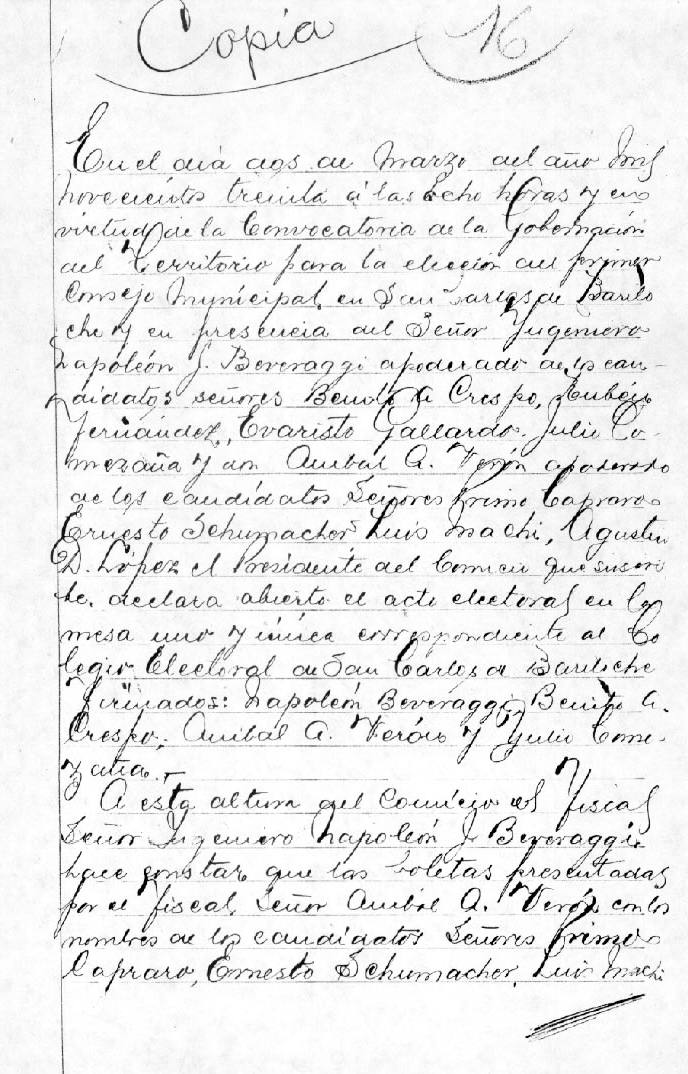 Copia 16
En el día dos de Marzo del año mil
novecientos treinta á las ocho horas y en
virtud de la Convocatoria de la Gobernación
del Territorio para la elección del primer
Consejo Municipal en San Carlos de Barilo
che y en presencia del Señor Ingeniero
Napoleón J. Beveraggi apoderado de los can-
didatos señores Benito A. Crespo, Rubén
Fernández, Evaristo Gallardo, Julio Co-
mezaña y don Anibal A. Verón apoderado
de los candidatos Señores Primo Capraro
Ernesto Schumacher Luis Machi, Agustin
D. López el Presidente del Comicio que suscri
be, declara abierto el acto electoral en la
mesa uno y única correspondiente al Co
legio Electoral de San Carlos de Bariloche
Firmados: Napoleón Beveraggi, Benito A.
Crespo, Anibal A. Verón y Julio Come-
zaña.
A esta altura del Comicio el fiscal
Señor Ingeniero Napoleón J. Beveraggi
hace constar que las boletas presentadas
por el fiscal Señor Anibal A. Verón con los
nombres de los candidatos Señores Primo
Capraro, Ernesto Schumacher, Luis Machi